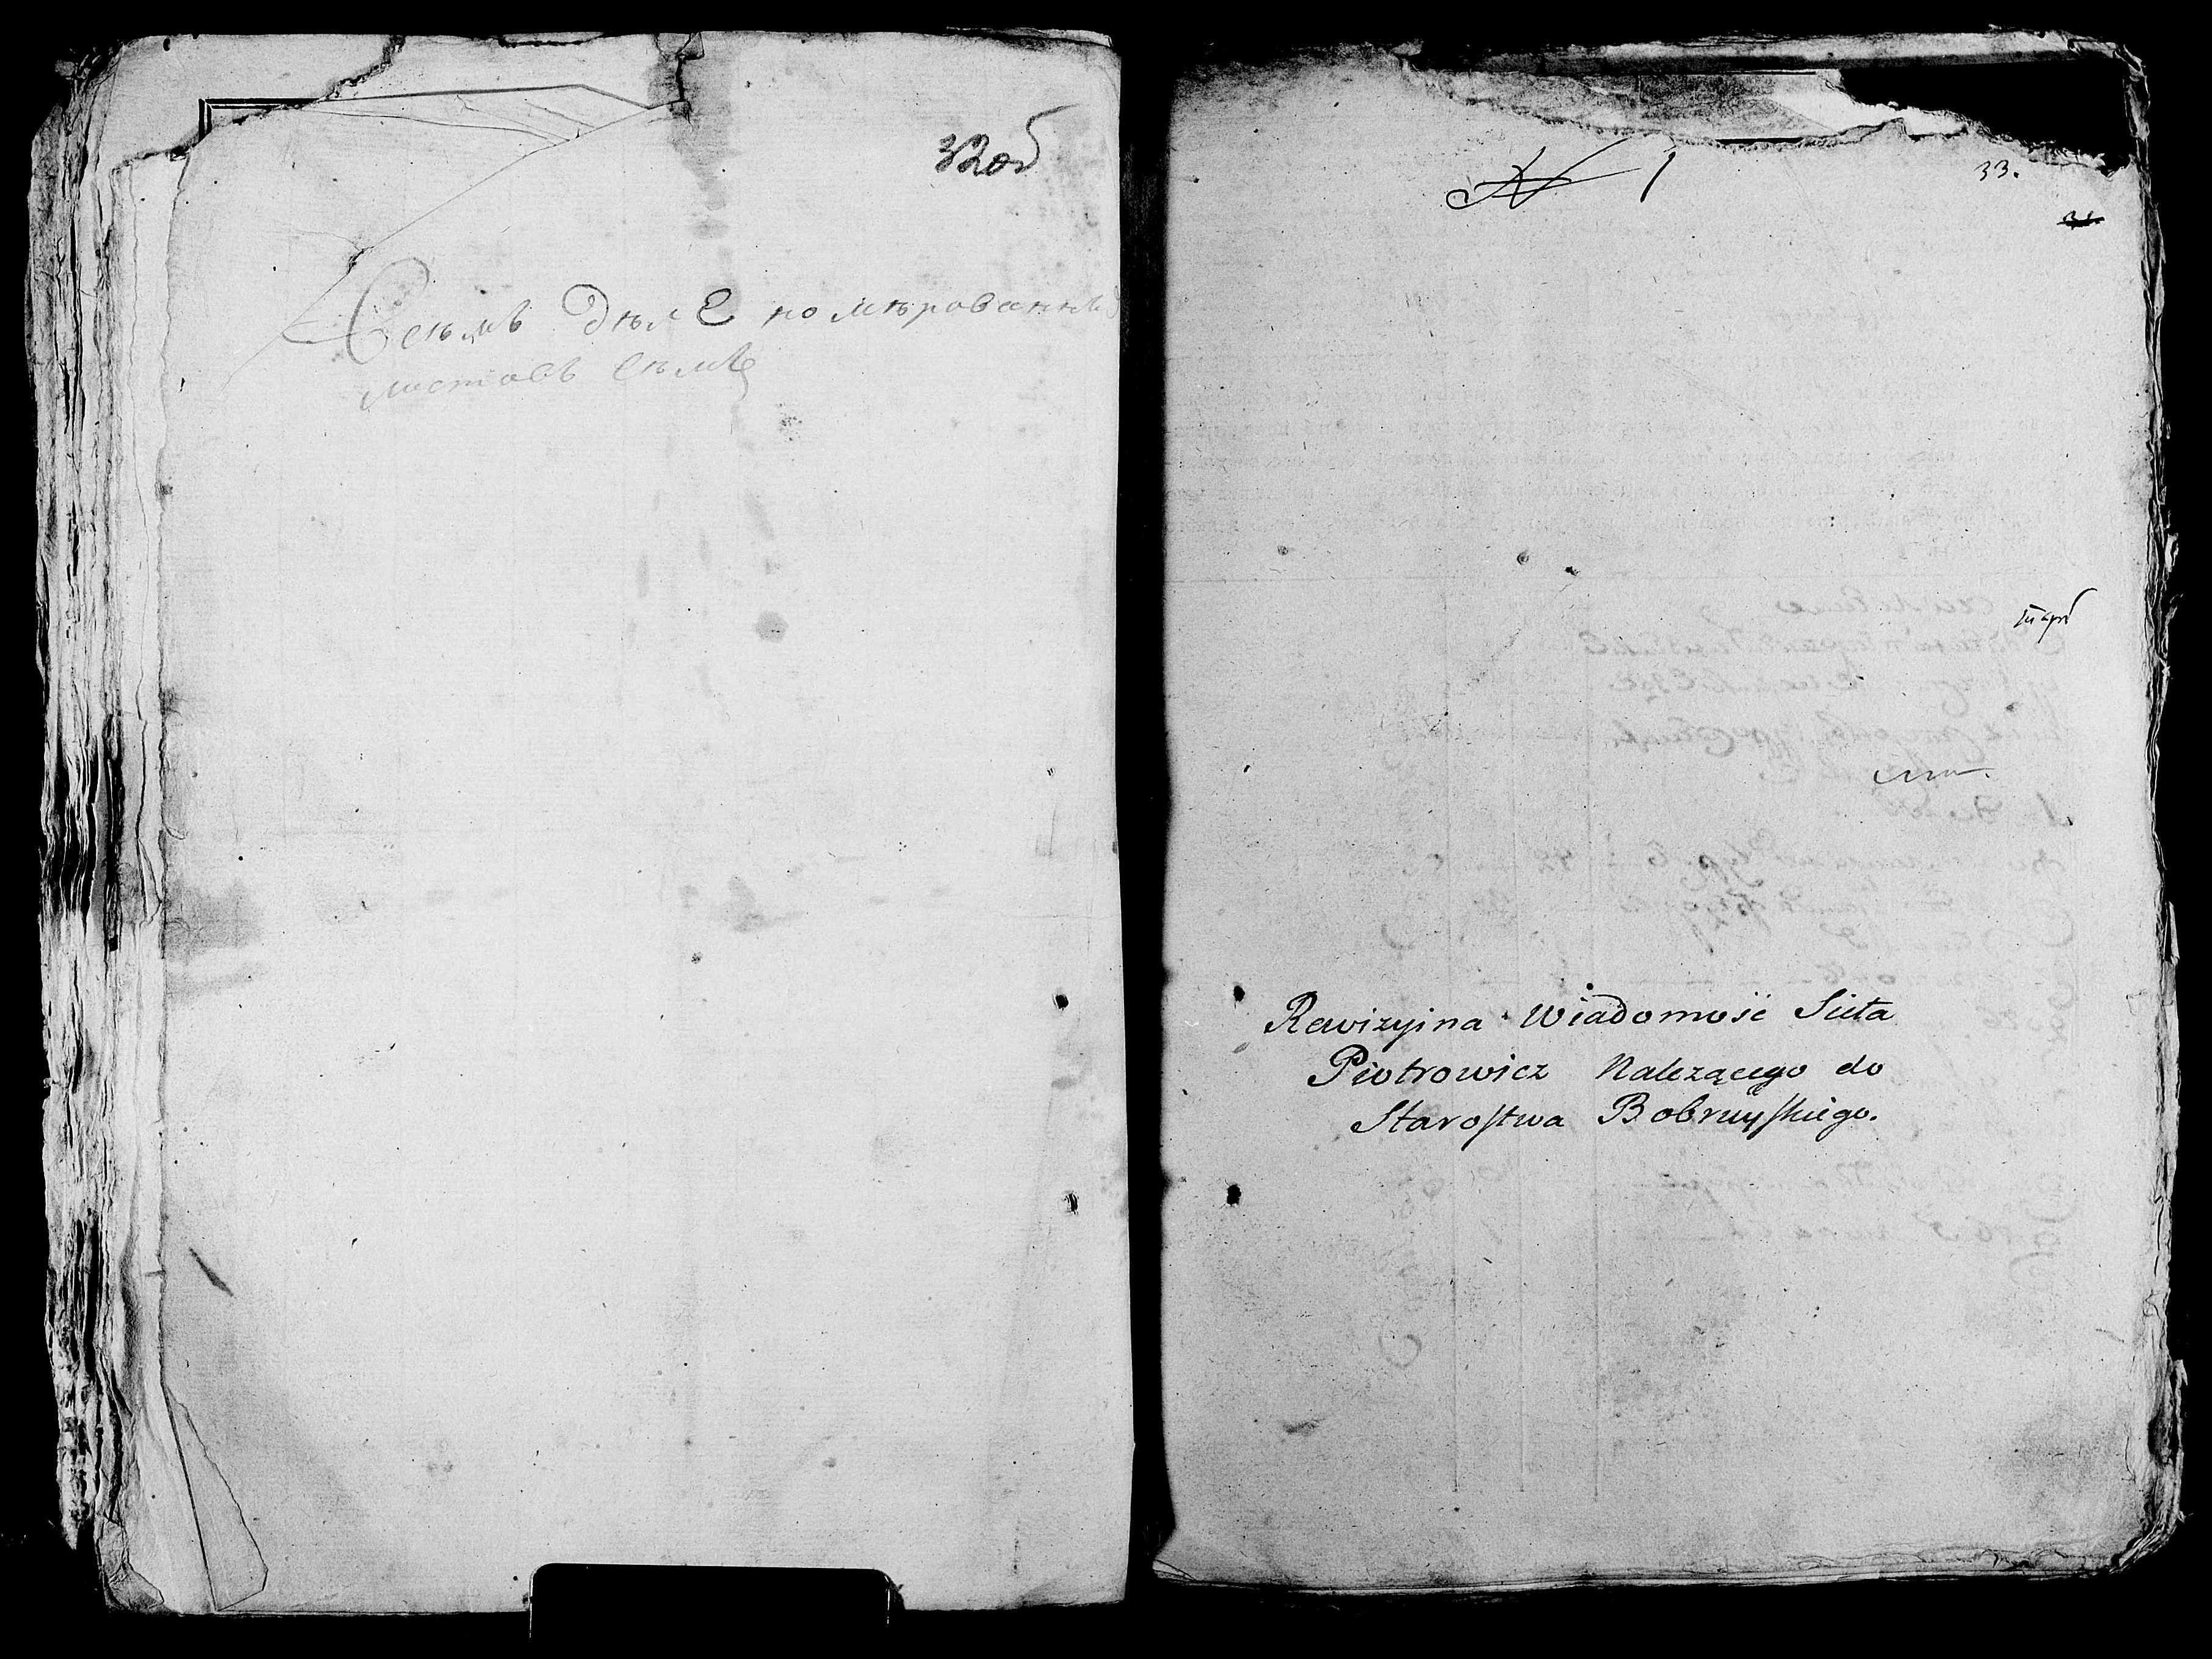 32об
Сенмъ дѣлѣ номѣрованных
листовъ семь
N 1
33.
31.
Rewizyina Wiadomość Sieła
Piotrowicz Należącego do
Starostwa Bobruyskiego.